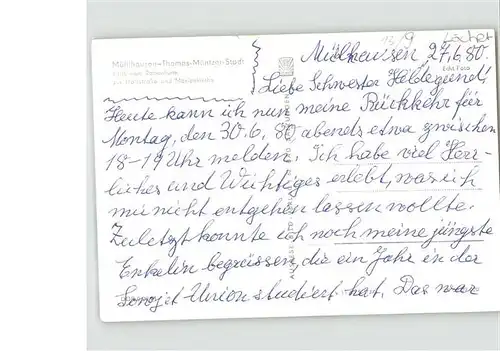 13/9 Löcher
Mühlhausen-Thomas-Müntzer-Stadt
Blick vom Rabenturm
zur Haarwand und Marienkirche
Mülhausen 27.6.80.
Echt Foto
Liebe Schwester Hildegund!
Heute kann ich nun meine Rückkehr für
Montag, den 30.6.80 abends etwa zwischen
18-19 Uhr melden. Ich habe viel Herr-
liches und Wichtiges erlebt, was ich
mir nicht entgehen lassen wollte.
Zuletzt konnte ich noch meine jüngste
Enkelin begrüssen, die ein Jahr in der
Sowjet-Union studiert hat. Das war